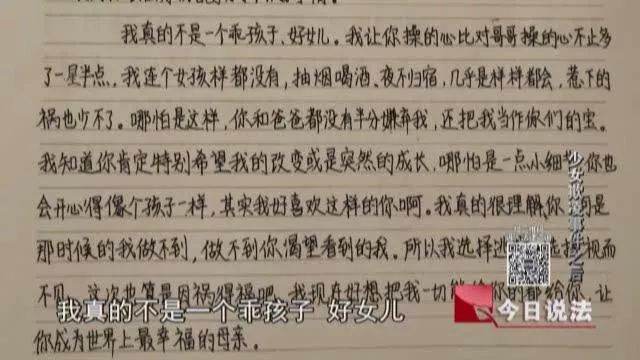 我真的不是一个乖孩子、好女儿。我让你操的心比对哥哥操的心不止多
了一星半点,我连个女孩样都没有,抽烟喝酒、夜不归宿,几乎是样样都会,惹下的
祸也少不了。哪怕是这样,你和爸爸都没有半分嫌弃我,还把我当作你们的宝。
我知道你肯定特别希望我的改变或是突然的成长,哪怕是一点小细节,你也
会开心得像个孩子一样,其实我好喜欢这样的你啊。我真的很理解你
是
那时候的我做不到,做不到你渴望看到的我。所以我选择逃
选择视而
不见。这次也算是因祸得福吧。我现在好想把我一切能给你的都给你,让
你成为世界上最幸福的母亲。
我真的不是一个乖孩子 好女儿
今日说法
少女
之后